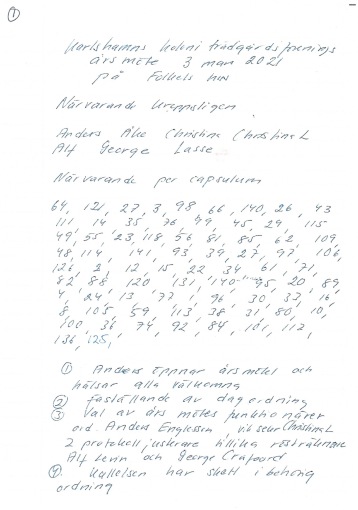 ①
Karlshamns koloni trädgårds förenings
års möte 3 mars 2021
på Folkets hus
Närvarande kroppsligen
Anders Åke Christina Christina L
Alf George Lasse
Närvarande per capsulam
64, 121, 27, 3, 98, 66, 140, 26, 43
111, 14, 35, 76, 49, 45, 29, 115
49, 55, 23, 118, 56, 81, 85, 62, 109,
48, 114, 141, 93, 39, 27, 97, 106,
126, 2, 12, 15, 22, 34, 61, 71,
82, 88, 120, 131, 140, 95, 20, 89,
4, 24, 13, 77, 1, 96, 30, 37, 16,
8, 105, 59, 113, 38, 31, 80, 10,
100, 36, 74, 92, 84, 101, 112,
136, 125,
① Anders öppnar års mötet och
hälsar alla välkomna
② fastställande av dagordning
③ Val av års mötes funktionärer
ord Anders Englesson, vik sekr Christina L
2 protokoll justerare tillika rösträknare
Alf Levin och George Crafoord
④ Kallelsen har skett i behörig
ordning